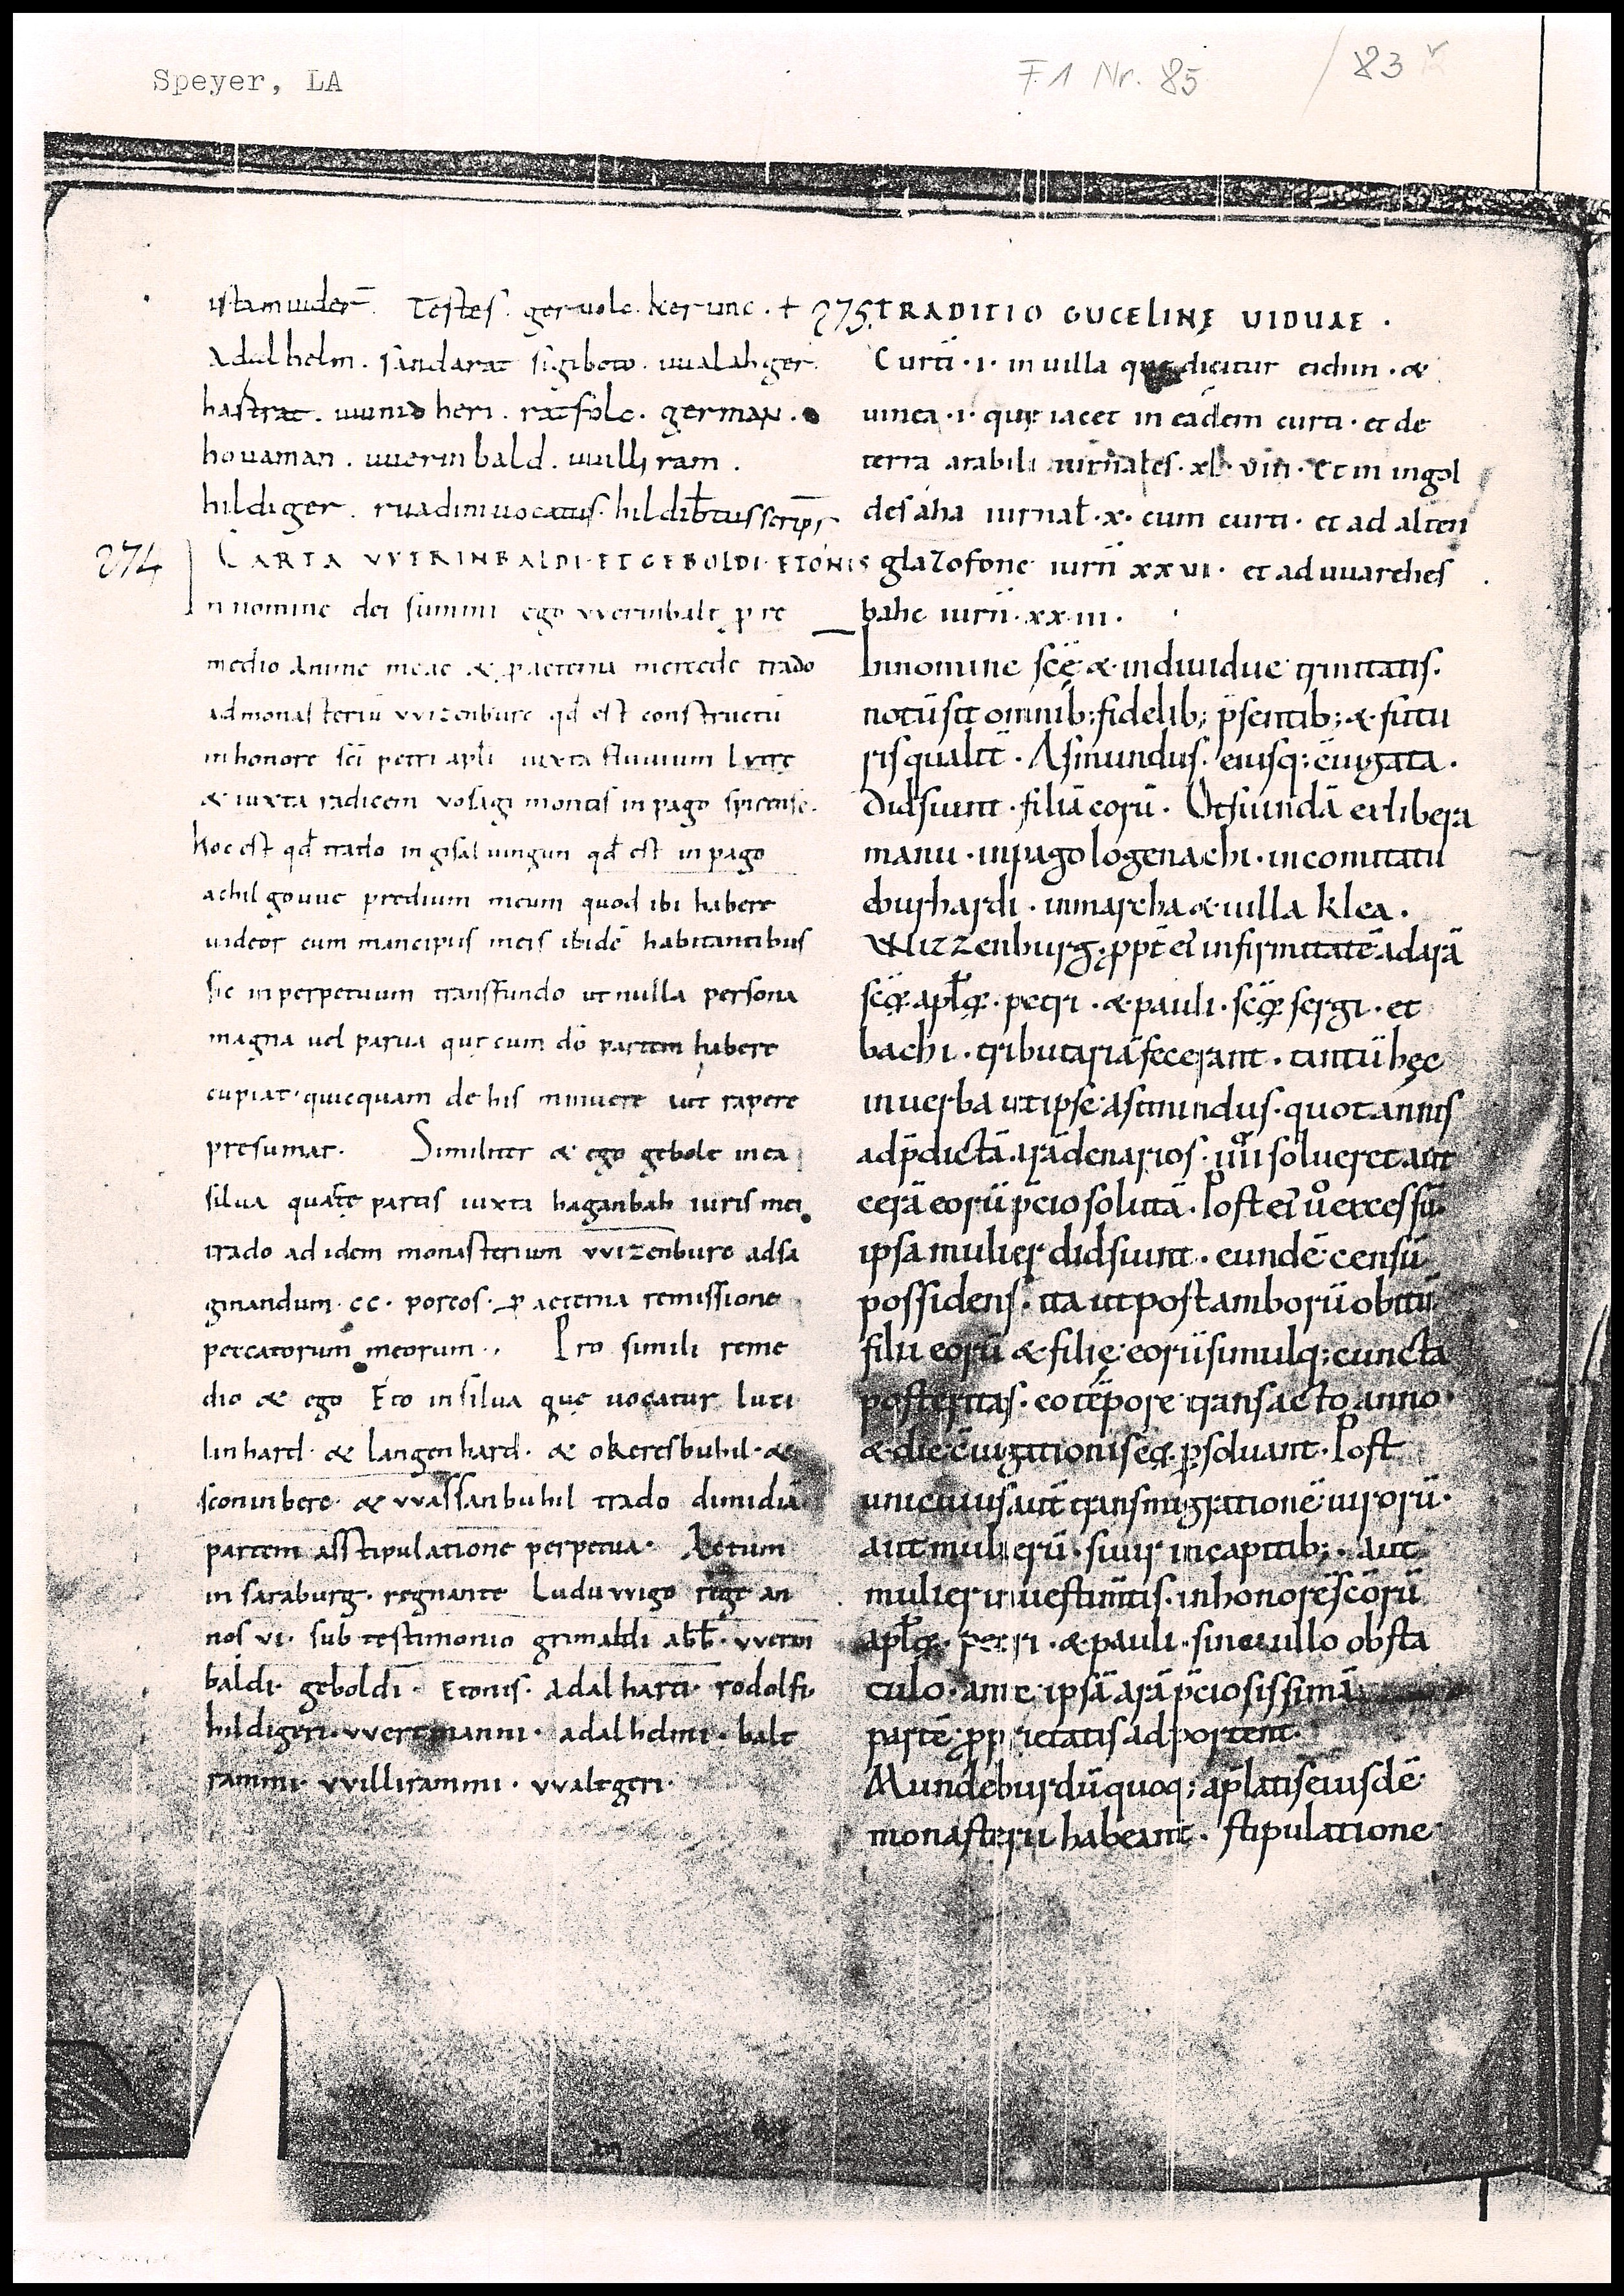 Speyer, LA
F.1 Nr. 85 / 83 v
istam uider̄. Testes. geruolc. kerunc. +
Adalhelm. sandarat sigiboto. uualahger.
hastrat. uunidheri. ratfolc. german.
houaman. uuerinbald. uuilliram.
hildiger. ruadini uocatus. hildib̄tus scrips̄
274
CARTA VVERINBALDI·ET GEBOLDI·ETONIS
In nomine dei summi ego vverinbalt ꝑ re
medio anime meae & ꝑ aeterna mercede trado
ad monasteriū vvizenburc qd̄ est constructū
in honore sc̄i petri apl̄i iuxta fluuium lutre
& iuxta radicem vosagi montis in pago spirense.
hoc est qd̄ trado in gisaluingun qd̄ est in pago
achilgouue predium meum quod ibi habere
uideor cum mancipiis meis ibidē habitantibus
sic in perpetuum transfundo ut nulla persona
magna uel parua que cum dō partem habere
cupiat· quicquam de his minuere aut rapere
presumat. Similiter & ego gebolt in ea
silua quarte partis iuxta haganbah iuris mei
trado ad idem monasterium vvizenburc adsa
ginandum·cc·porcos·ꝑ aeterna remissione
peccatorum meorum·, Pro simili reme
dio & ego Eto in silua que uocatur luti
linhard·& langenhard·& okeresbuhil·&
sconinberc·& vvassanbuhil trado dimidiā
partem asstipulatione perpetua· Actum
in saraburg· regnante Luduvvigo rege an
nos vi· sub testimonio grimaldi abb̄·vverin
baldi· geboldi· Etonis· Adalharti· rodolfi·
hildigeri·vvertmanni· adalhelmi· balt
rammi· vvillirammi· vvaltgeri·
275. TRADITIO GUCELINĘ UIDUAE·
Curtī·i· in uilla que dicitur eichin·&
uinea·i· quę iacet in eadem curti·et de
terra arabili iurnales·xl·viii·Et in ingol
desaha iurnał·x·cum curti· et ad alten
glazofone iurn̄ xxvi· et ad uuarehes
bahc iurn̄·xx·iii·
In nomine sc̄ę & indiuidue trinitatis.
notū sit omnib; fidelib; p̄sentib; & futu
ris qualit̄. Asmundus. eiusq; ciugata.
Didsuint· filiā eorū. Otsiundā ex libera
manu·in pago logenachi·in comitatu
eburhardi·in marcha & uilla klea.
Wizzenburg. ꝓpt ei' infirmitatē ad arā
sc̄oꝝ apl̄oꝝ·petri·& pauli·sc̄oꝝ sergi·et
bachi·tributariā fecerant·tantū hęc
in uerba ut ipse asmundus·quot annis
ad p̄dictā arā denarios·iiii solueret aut
cerā eorū p̄cio solutā. Post ei' ů excessū
ipsa mulier didsuint·eundē censū
possidens·ita ut post amborū obitū
filii eorū & filię eorū simulq; cuncta
posteritas·eo tēpore transacto anno
& die ciugationis eoꝝ ꝑsoluant·Post
unicuius aut transmigrationē uirorū·
aut mulierū·suur in capitib;·aut
mulier in uestimtis·in honorē sc̄orū
apl̄oꝝ·petri·& pauli·sine ullo obsta
culo·ante ipsā arā p̄ciosissimā
partē ꝓprietatis adportent·
Mundeburdū quoq; ap̄latis eiusdē
monasterii habeant·stipulatione